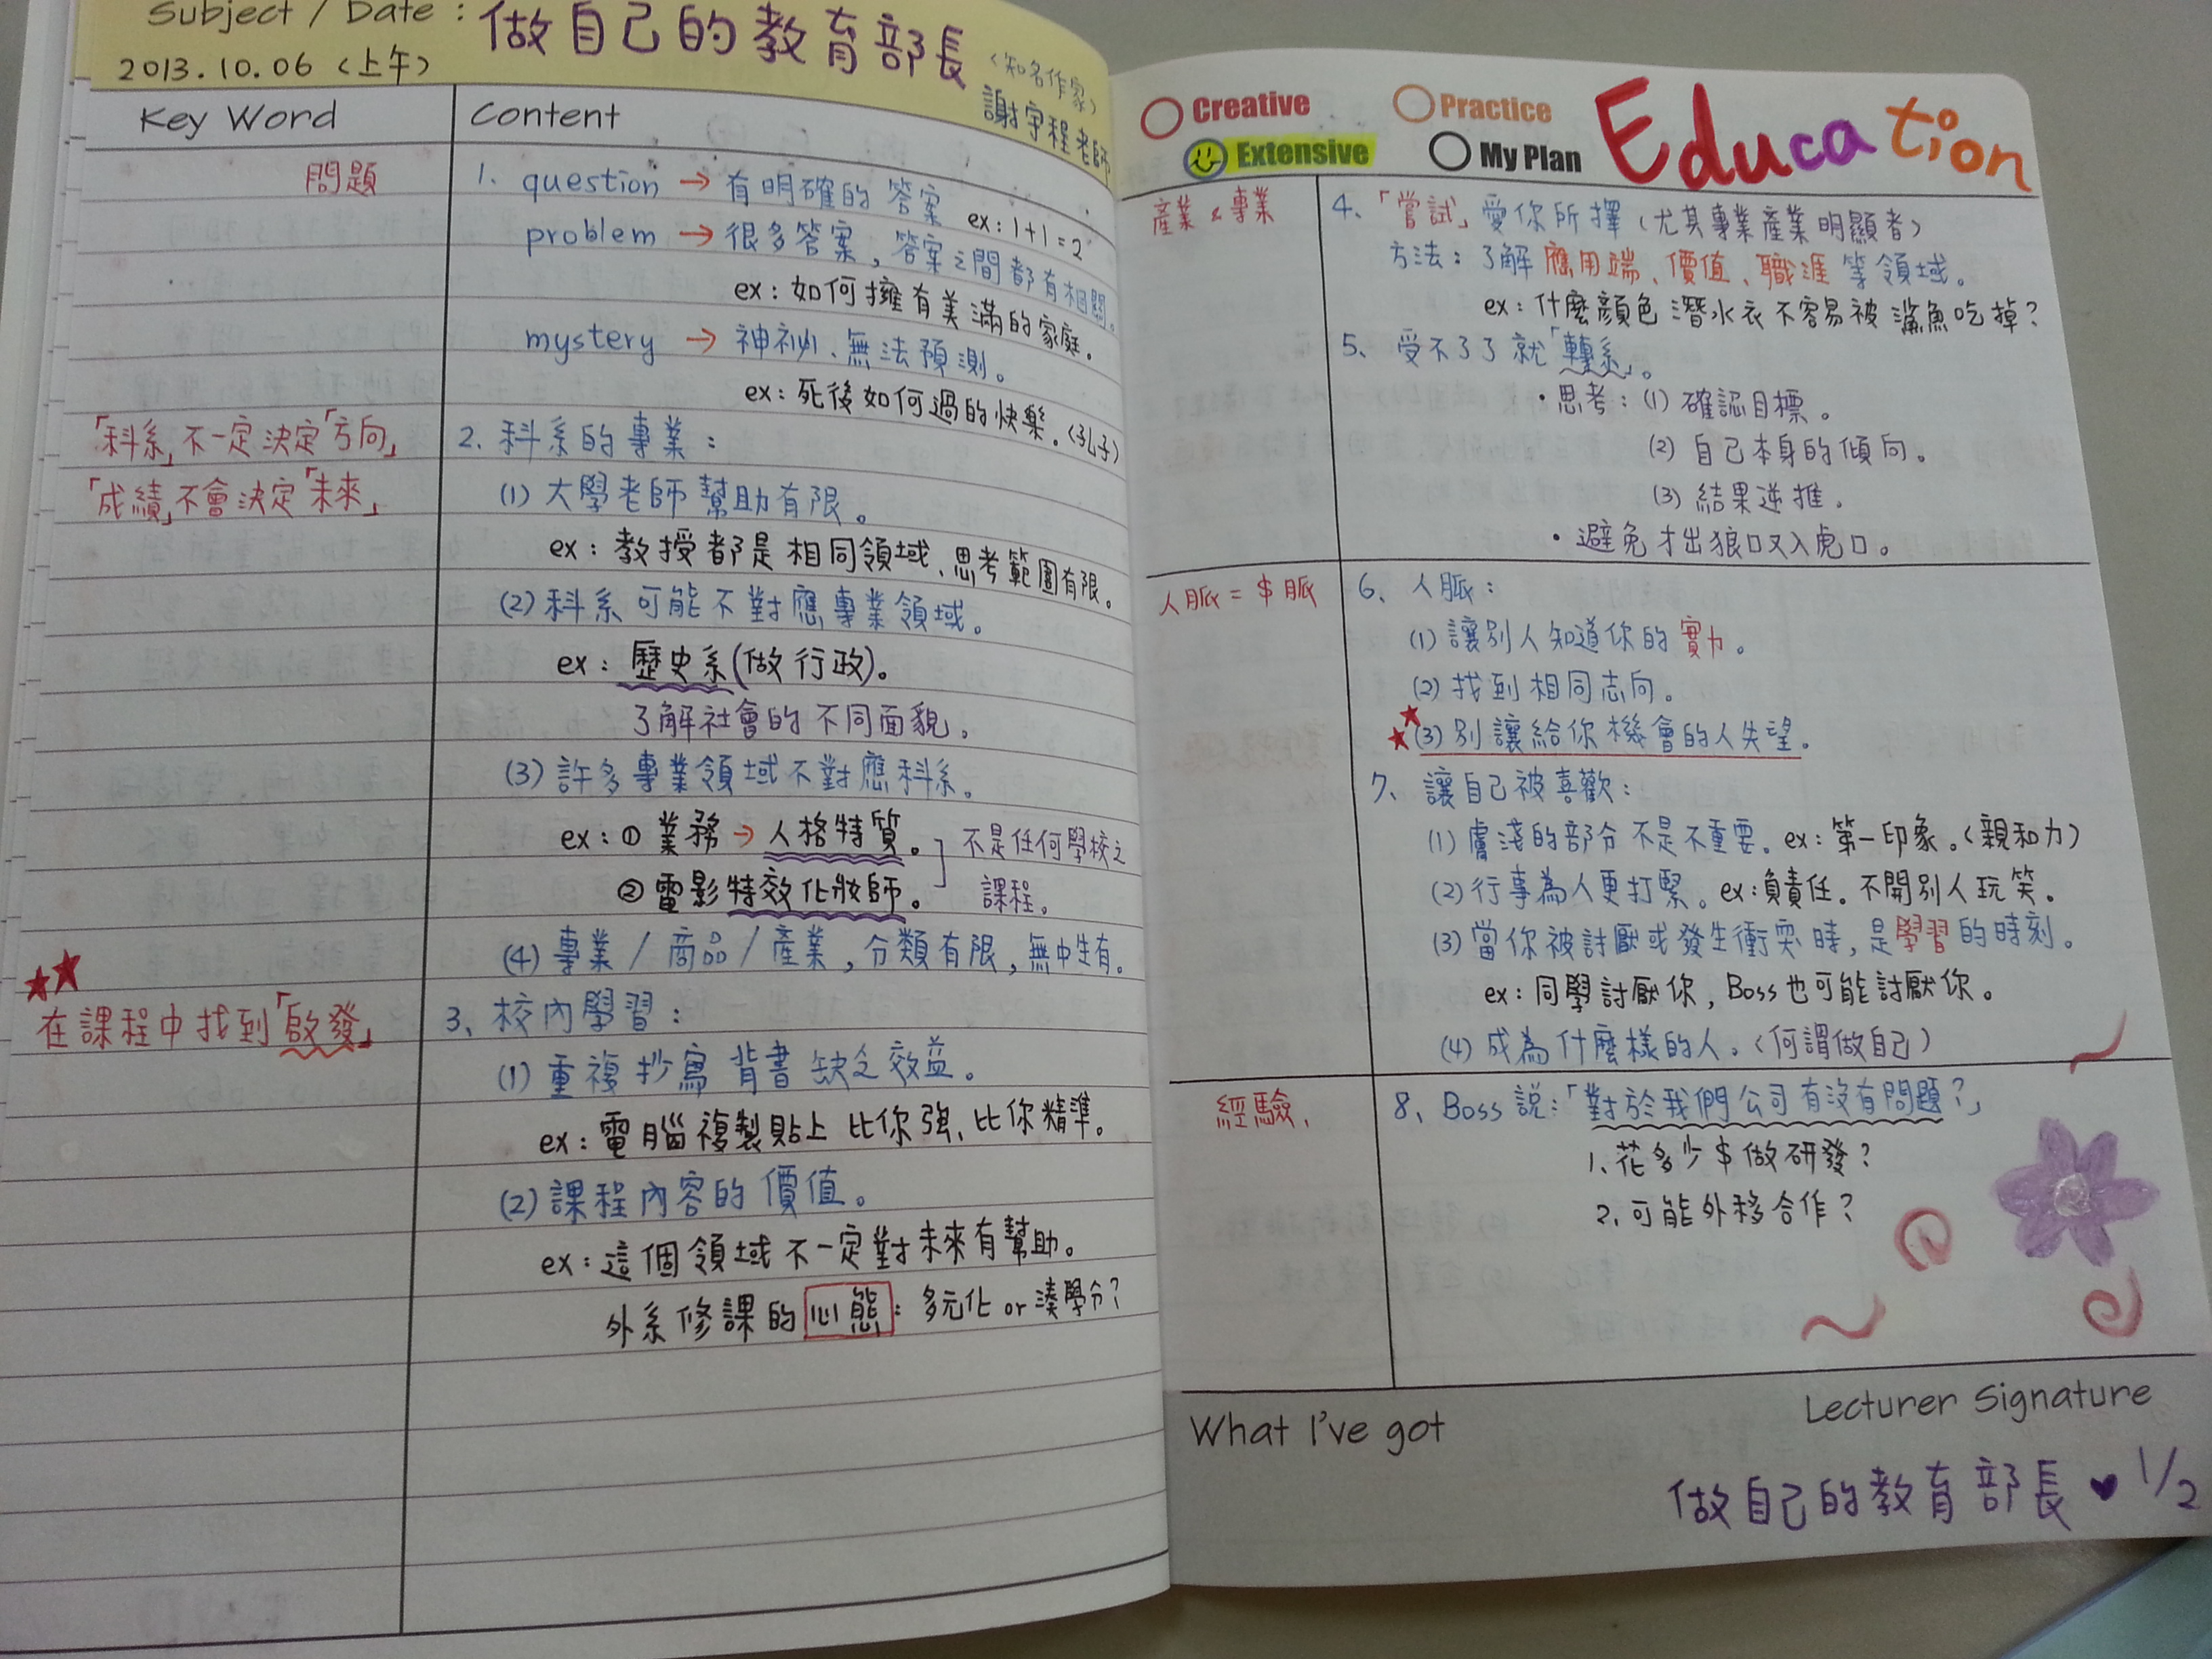 Subject / Date : 做自己的教育部長
2013.10.06 (上午)
(知名作家)
謝宇程老師
Key Word
Content
問題
1. question → 有明確的答案 ex: 1+1=2
problem → 很多答案, 答案之間都有相關。
ex: 如何擁有美滿的家庭。
mystery → 神祕、無法預測。
ex: 死後如何過的快樂。(孔子)
「科系」不一定決定「方向」
「成績」不會決定「未來」
2. 科系的專業:
(1) 大學老師幫助有限。
ex: 教授都是相同領域、思考範圍有限。
(2) 科系可能不對應專業領域。
ex: 歷史系(做行政)。
了解社會的不同面貌。
(3) 許多專業領域不對應科系。
ex: ① 業務 → 人格特質。
② 電影特效化妝師。
不是任何學校之
課程。
(4) 專業 / 商品 / 產業, 分類有限, 無中生有。
在課程中找到「啟發」
3、校內學習:
(1) 重複抄寫背書缺乏效益。
ex: 電腦複製貼上比你強、比你精準。
(2) 課程內容的價值。
ex: 這個領域不一定對未來有幫助。
外系修課的心態: 多元化 or 湊學分?
Creative
Practice
Extensive
My Plan
Education
產業 & 專業
4、「嘗試」愛你所擇 (尤其專業產業明顯者)
方法: 了解應用端、價值、職涯等領域。
ex: 什麼顏色潛水衣不容易被鯊魚吃掉?
5、受不了了就「轉系」。
・思考: (1) 確認目標。
(2) 自己本身的傾向。
(3) 結果逆推。
・避免才出狼口又入虎口。
人脈 = $脈
6、人脈:
(1) 讓別人知道你的實力。
(2) 找到相同志向。
(3) 別讓給你機會的人失望。
7、讓自己被喜歡:
(1) 膚淺的部分不是不重要。ex: 第一印象。(親和力)
(2) 行事為人更打緊。ex: 負責任。不開別人玩笑。
(3) 當你被討厭或發生衝突時, 是學習的時刻。
ex: 同學討厭你, Boss也可能討厭你。
(4) 成為什麼樣的人。(何謂做自己)
經驗、
8、Boss說:「對於我們公司有沒有問題?」
1、花多少$做研發?
2、可能外移合作?
What I've got
Lecturer Signature
做自己的教育部長 ♥ 1/2